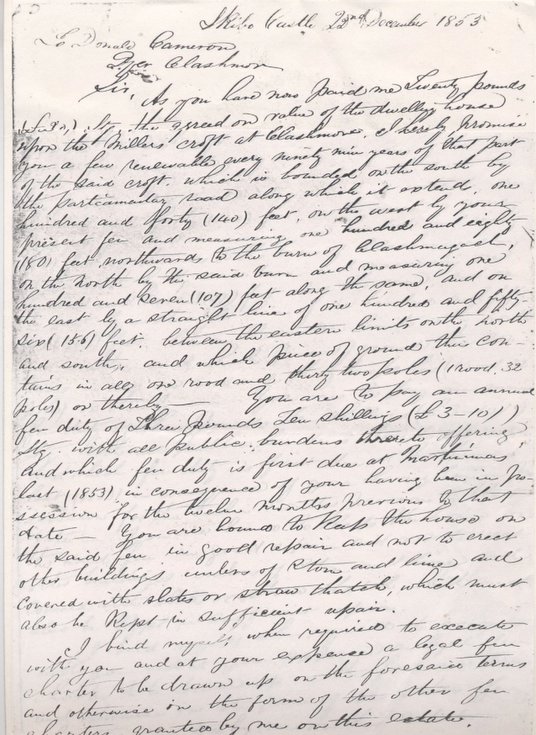 Skibo Castle 22nd December 1853
To Donald Cameron
Clashmore
Sir,
As you have now paid me Twenty pounds
(£20,) Stg. the agreed on value of the dwelling house
upon the Millers croft at Clashmore, I hereby promise
you a feu renewable every ninety nine years of that part
of the said croft, which is bounded on the south by
the parliamentary road along which it extends, one
hundred and forty (140) feet, on the west by your
present feu and measuring one hundred and eighty
(180) feet northwards to the burn of Clashmugach,
on the North by the said burn and measuring one
hundred and seven (107) feet along the same, and on
the east by a straight line of one hundred and fifty
six (156) feet, between the eastern limits on the north
and south, and which piece of ground thus con-
tains in all, one rood and thirty two poles (1 rood, 32
poles) or thereby — You are to pay an annual
feu duty of Three pounds Ten shillings (£3-10/)
Stg. with all public burdens thereto offering
and which feu duty is first due at Martinmas
last (1853) in consequence of your having been in po-
ssession for the twelve months previous to that
date — You are bound to keep the house on
the said feu in good repair and not to erect
other buildings unless of stone and lime and
covered with slates or straw thatch, which must
also be kept in sufficient repair.
I bind myself, when required to execute
with you and at your expense a legal feu
charter to be drawn up on the foresaid terms
and otherwise in the form of the other feu
charters granted by me on this estate.